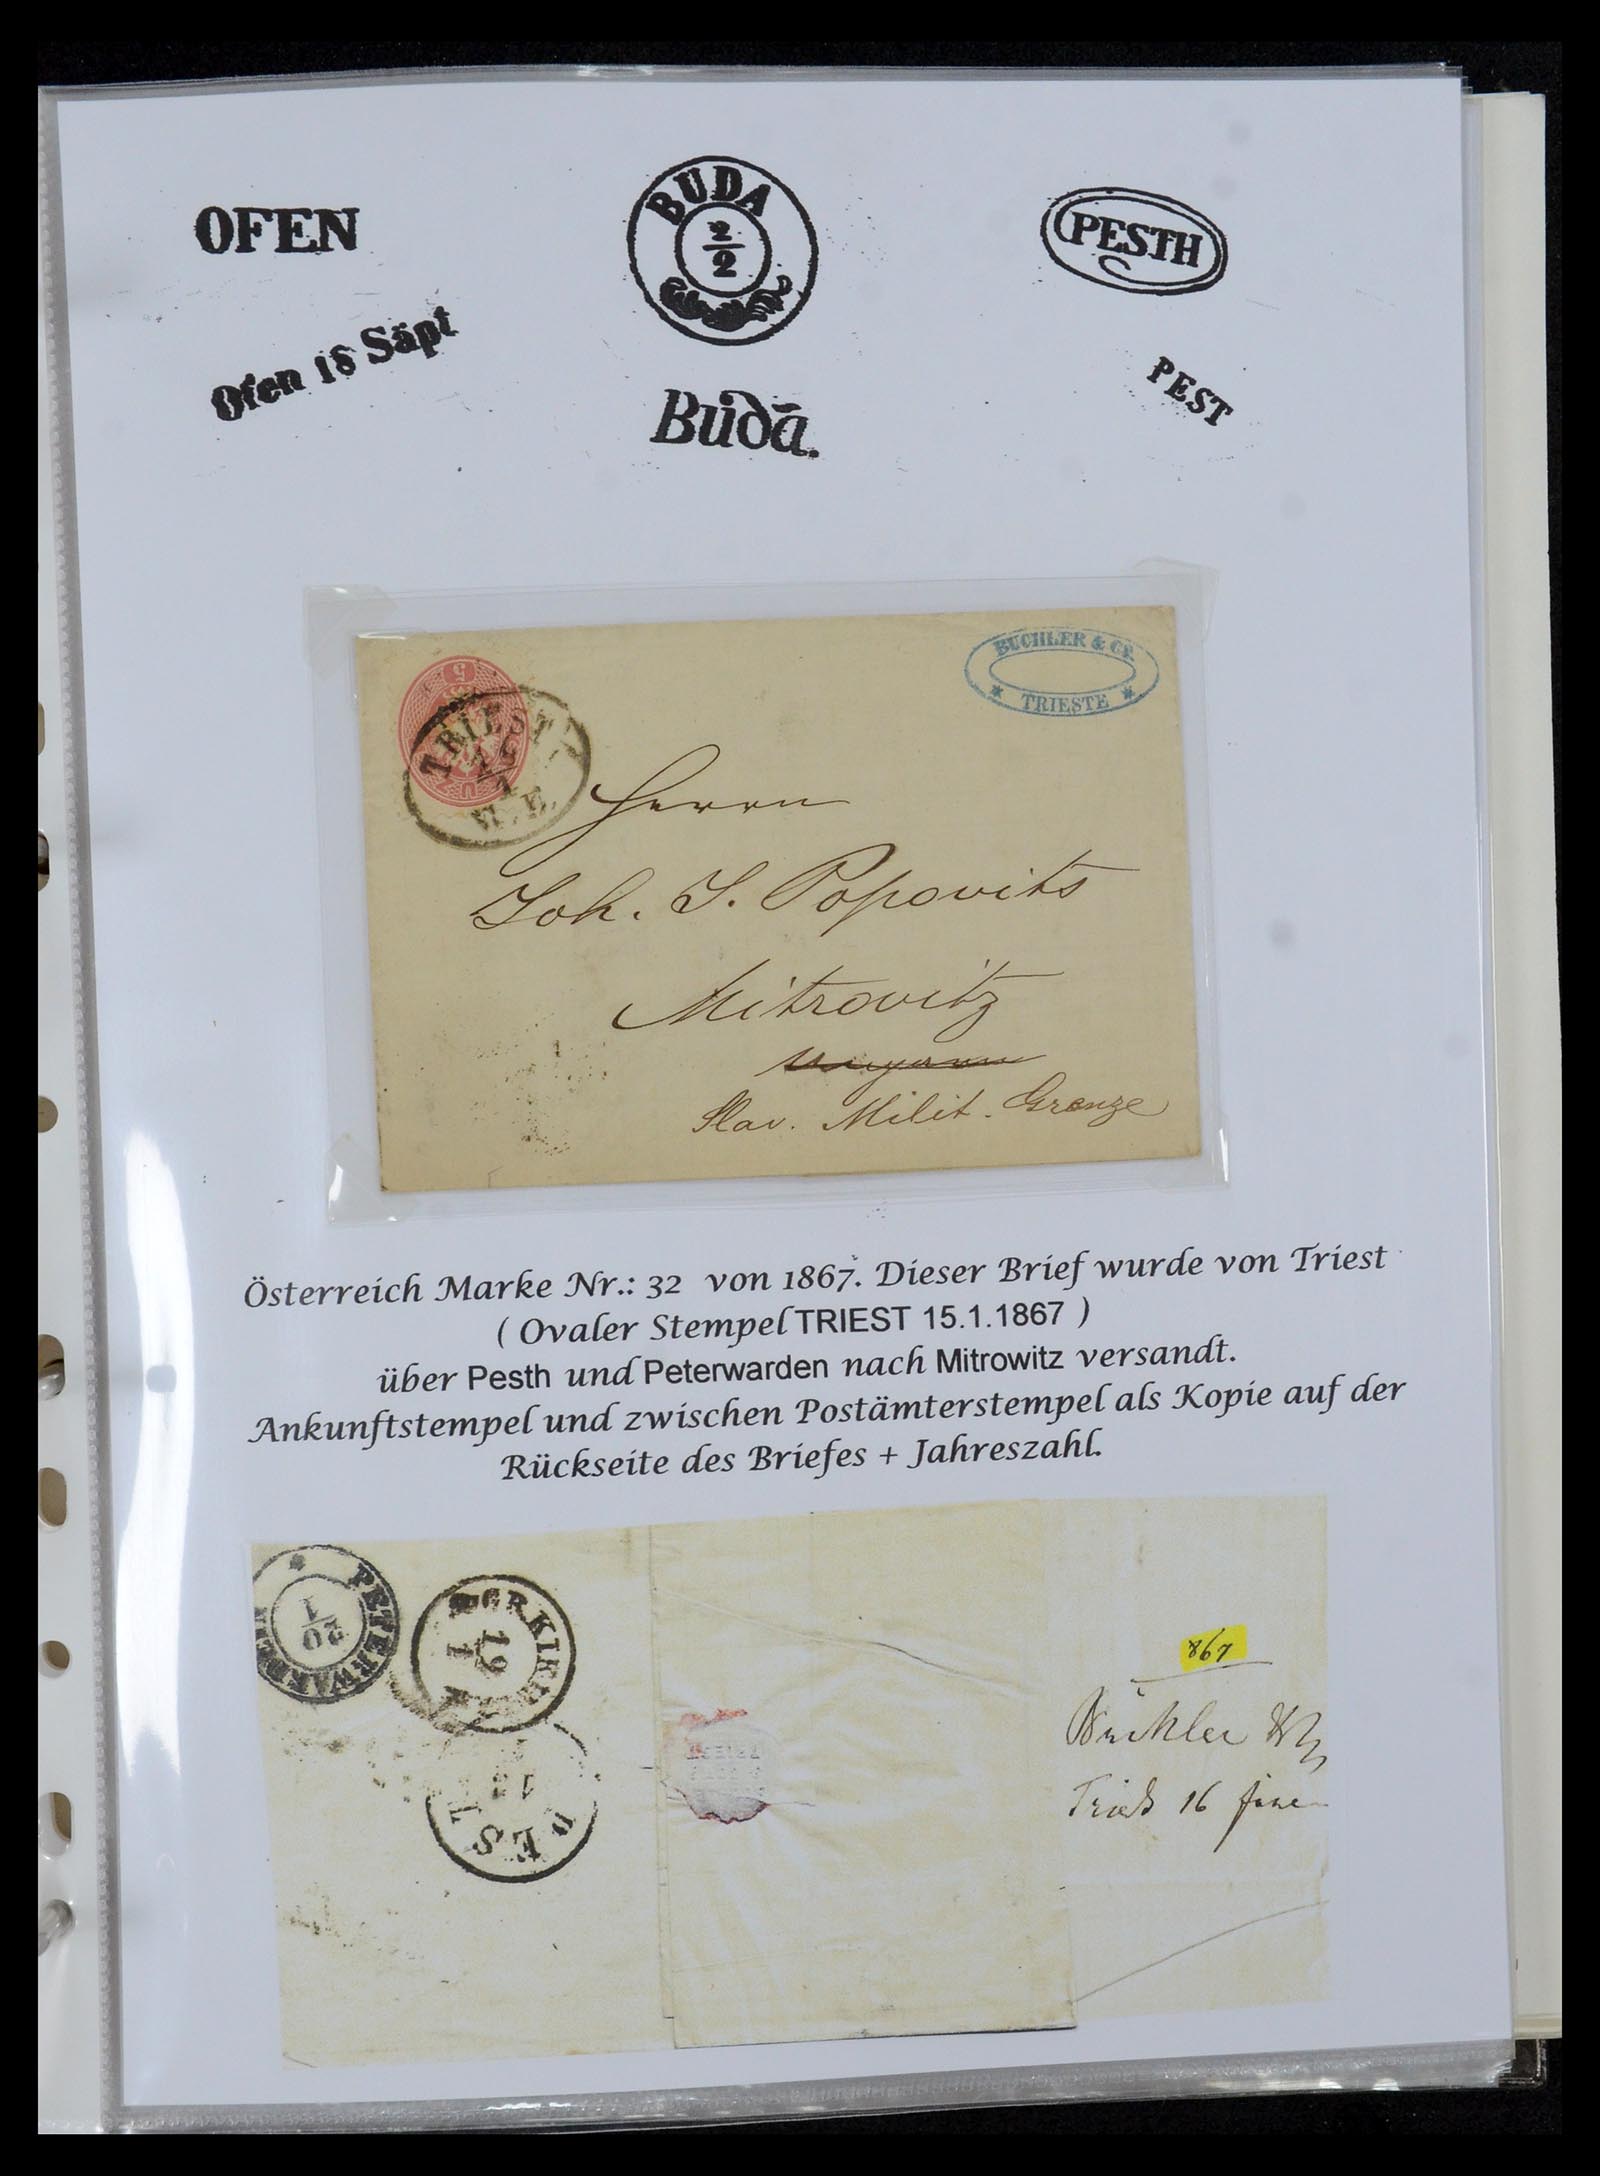 OFEN
BUDA
2
2
PESTH
Ofen 18 Säpt
Budā.
PEST
5
TRIEST
BUCHLER & Cᵒ.
TRIESTE
Herrn
Joh. S. Popovits
Mitrovitz
Slav. Milit. Grenze
Österreich Marke Nr.: 32 von 1867. Dieser Brief wurde von Triest
( Ovaler Stempel TRIEST 15.1.1867 )
über Pesth und Peterwarden nach Mitrowitz versandt.
Ankunftstempel und zwischen Postämterstempel als Kopie auf der
Rückseite des Briefes + Jahreszahl.
PETERWARDEIN
20
1
19
1
PEST
867
Büchler
Triest 16